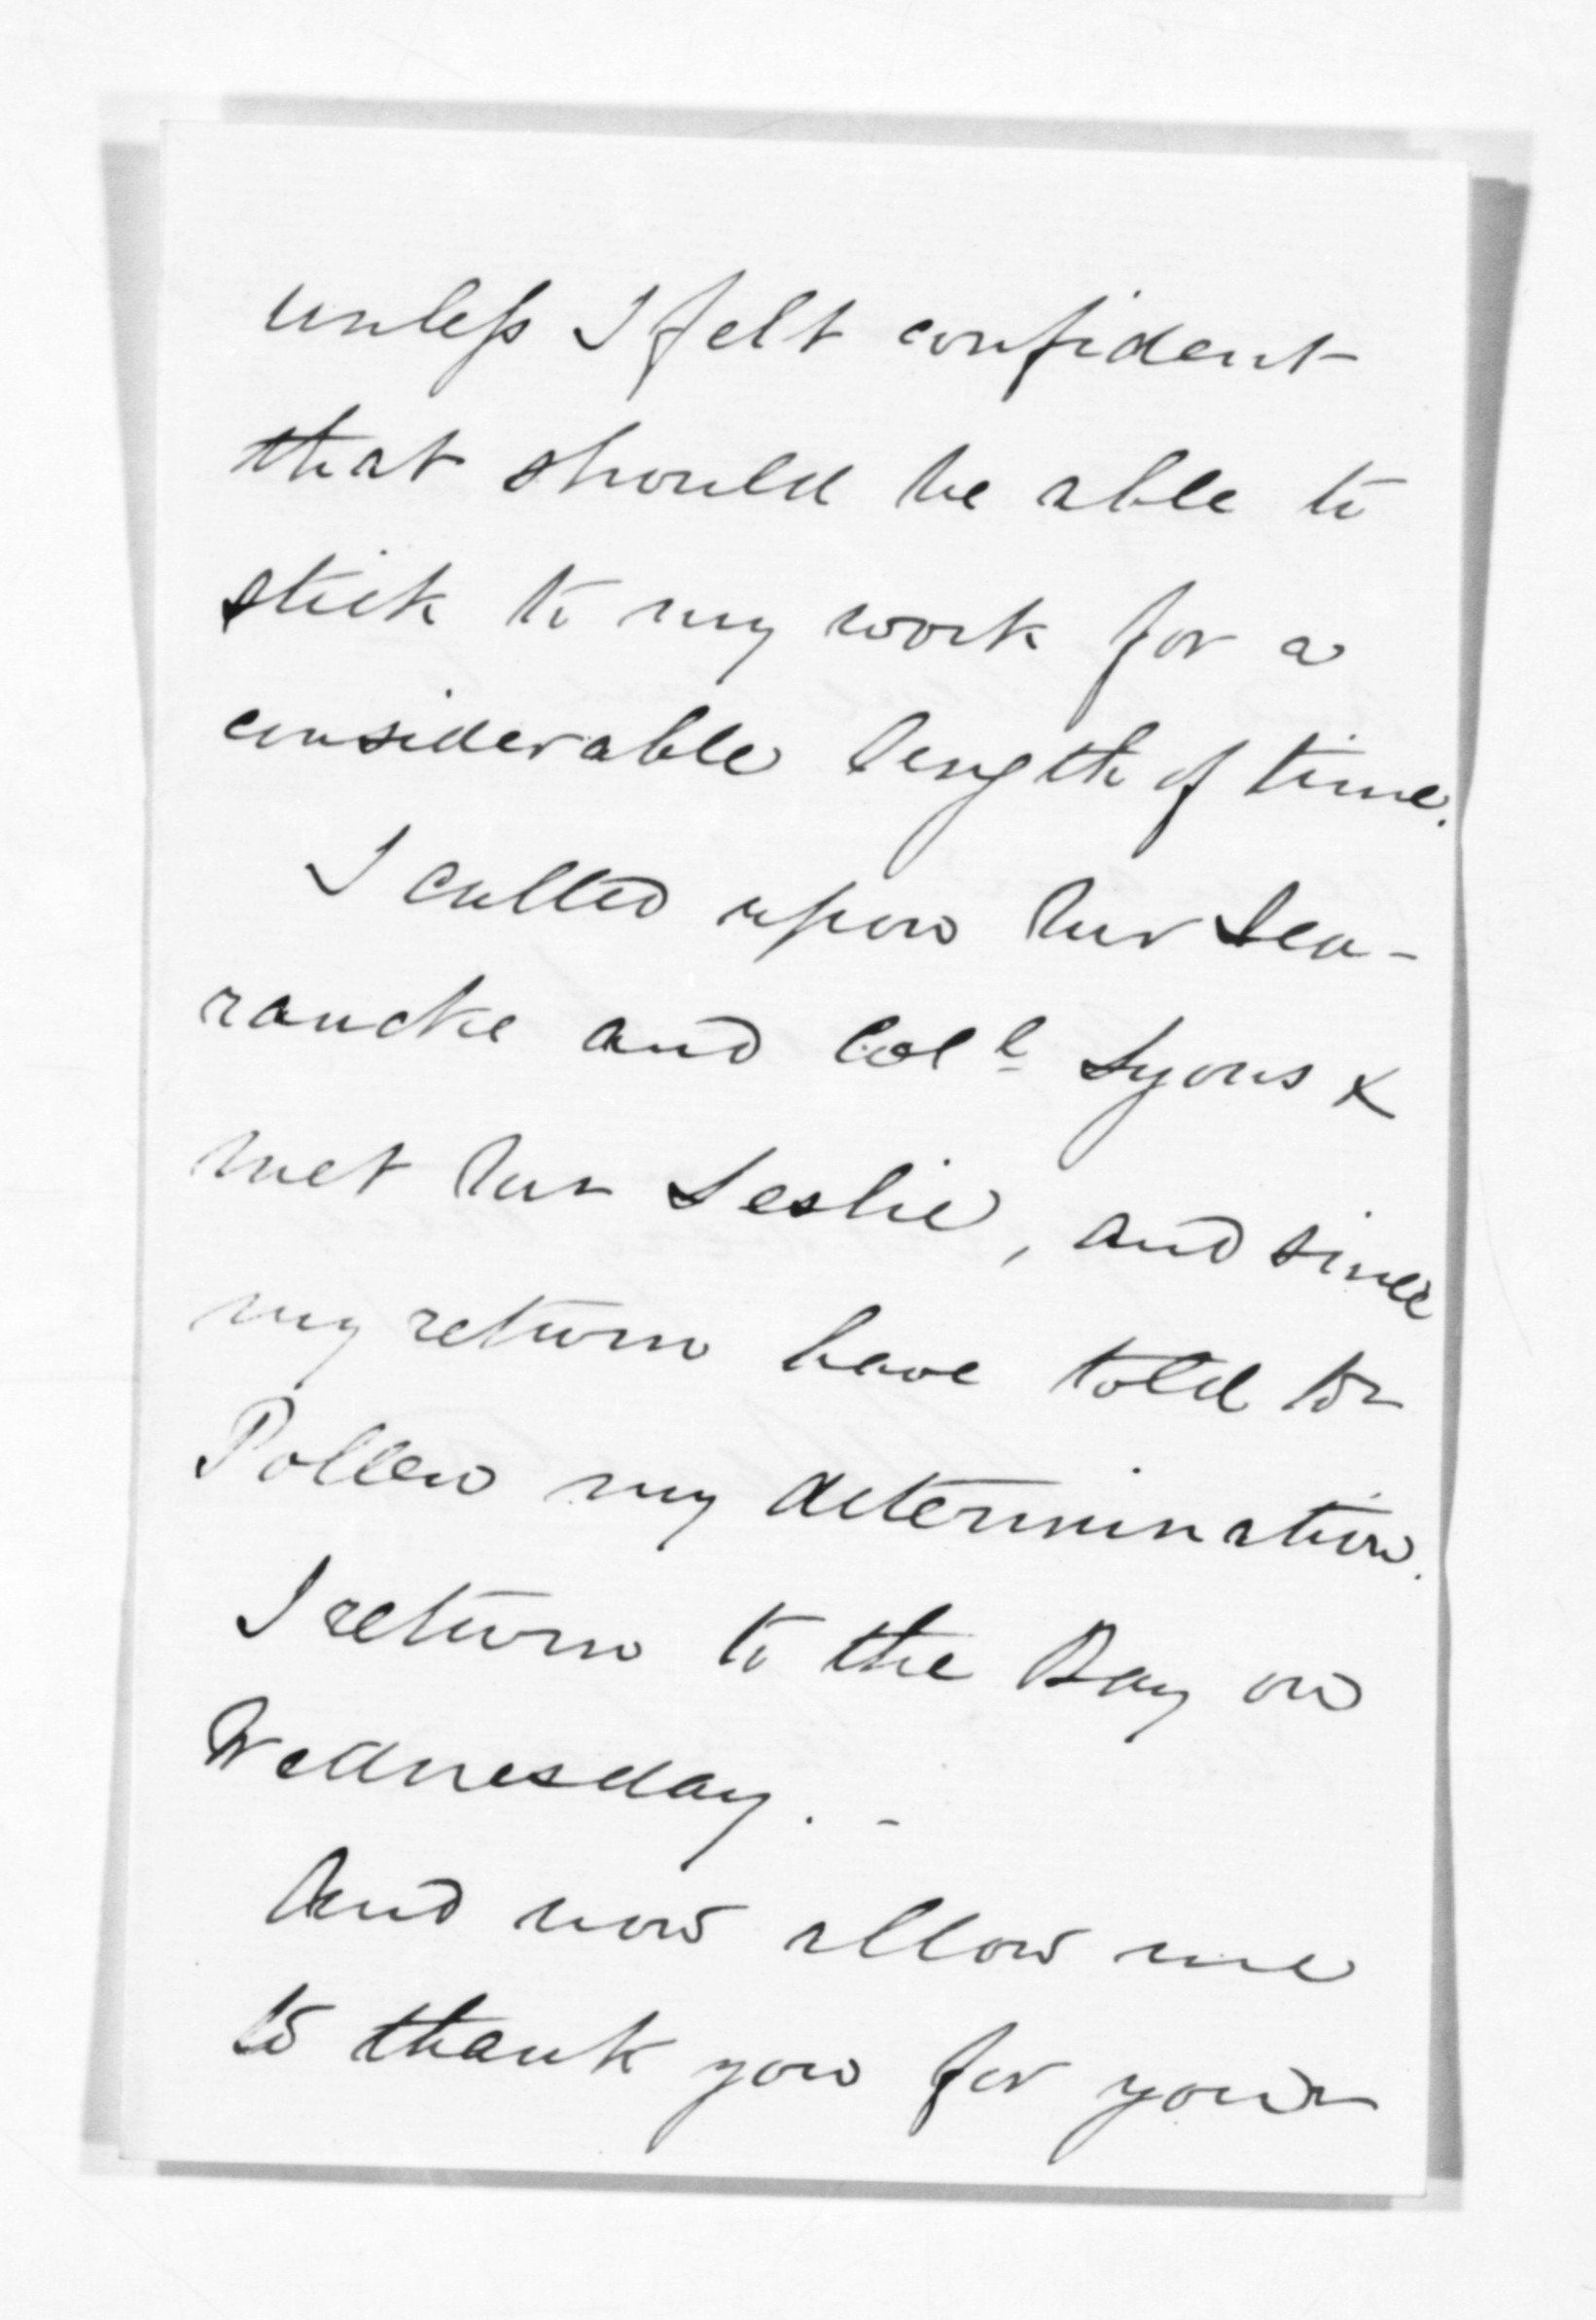 unless I felt confident
that should be able to
stick to my work for a
considerable length of time.
I called upon Mr Sea-
rancke and Coll Lyons &
met Mr Leslie, and since
my return have told Dr
Pollen my determination.
I return to the Bay on
Wednesday. -
And now allow me
to thank you for your